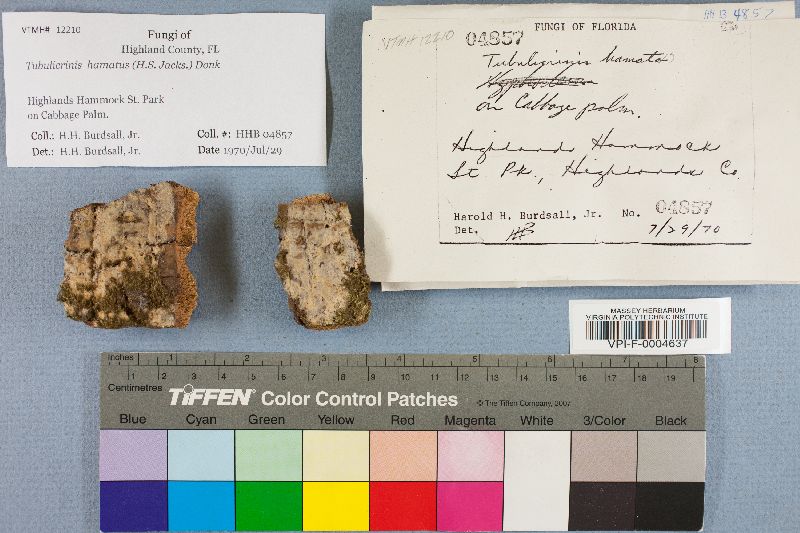 VTMH# 12210
Fungi of
Highland County, FL
Tubulicrinis hamatus (H.S. Jacks.) Donk
Highlands Hammock St. Park
on Cabbage Palm.
Coll.: H.H. Burdsall, Jr. Coll. #: HHB 04857
Det.: H.H. Burdsall, Jr. Date 1970/Jul/29
HHB 4857
VTMH 12210
FUNGI OF FLORIDA
04857
Tubulicrinis hamatus
on Cabbage palm.
Highland Hammock
St. Pk., Highlands Co.
Harold H. Burdsall, Jr. No. 04857
Det. HHB 7/29/70
MASSEY HERBARIUM
VIRGINIA POLYTECHNIC INSTITUTE
VPI-F-0004637
Inches 1 2 3 4 5 6 7 8
Centimetres 1 2 3 4 5 6 7 8 9 10 11 12 13 14 15 16 17 18 19
TIFFEN Color Control Patches © The Tiffen Company, 2007
Blue Cyan Green Yellow Red Magenta White 3/Color Black